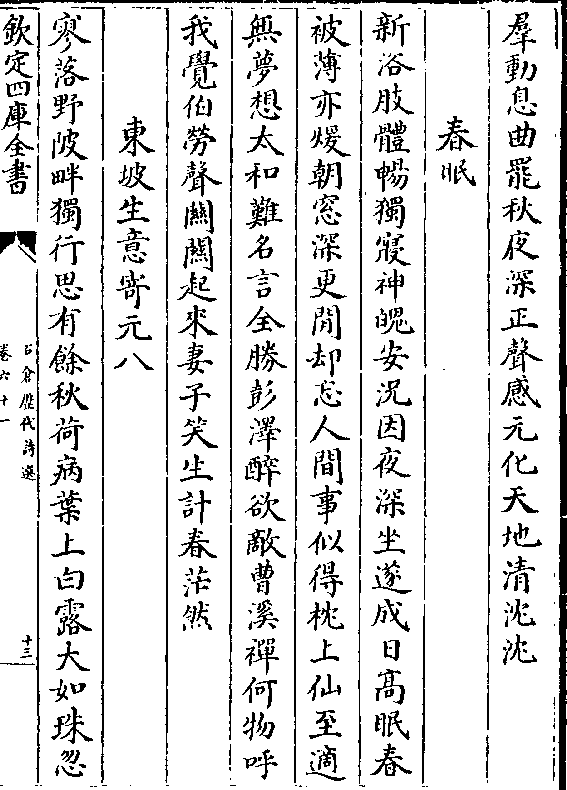 羣動息曲罷秋夜深正聲感元化天地清沈沈
春眠
新浴肢體暢獨寢神魄安況因夜深坐遂成日高眠春
被薄亦煖朝窓深更閒却忘人間事似得枕上仙至適
無夢想太和難名言全勝彭澤醉欲敵曹溪禪何物呼
我覺伯勞聲關關起來妻子笑生計春茫然
東坡生意寄元八
寥落野陂畔獨行思有餘秋荷病葉上白露大如珠忽
欽定四庫全書
石倉歷代詩選
卷六十一
十三